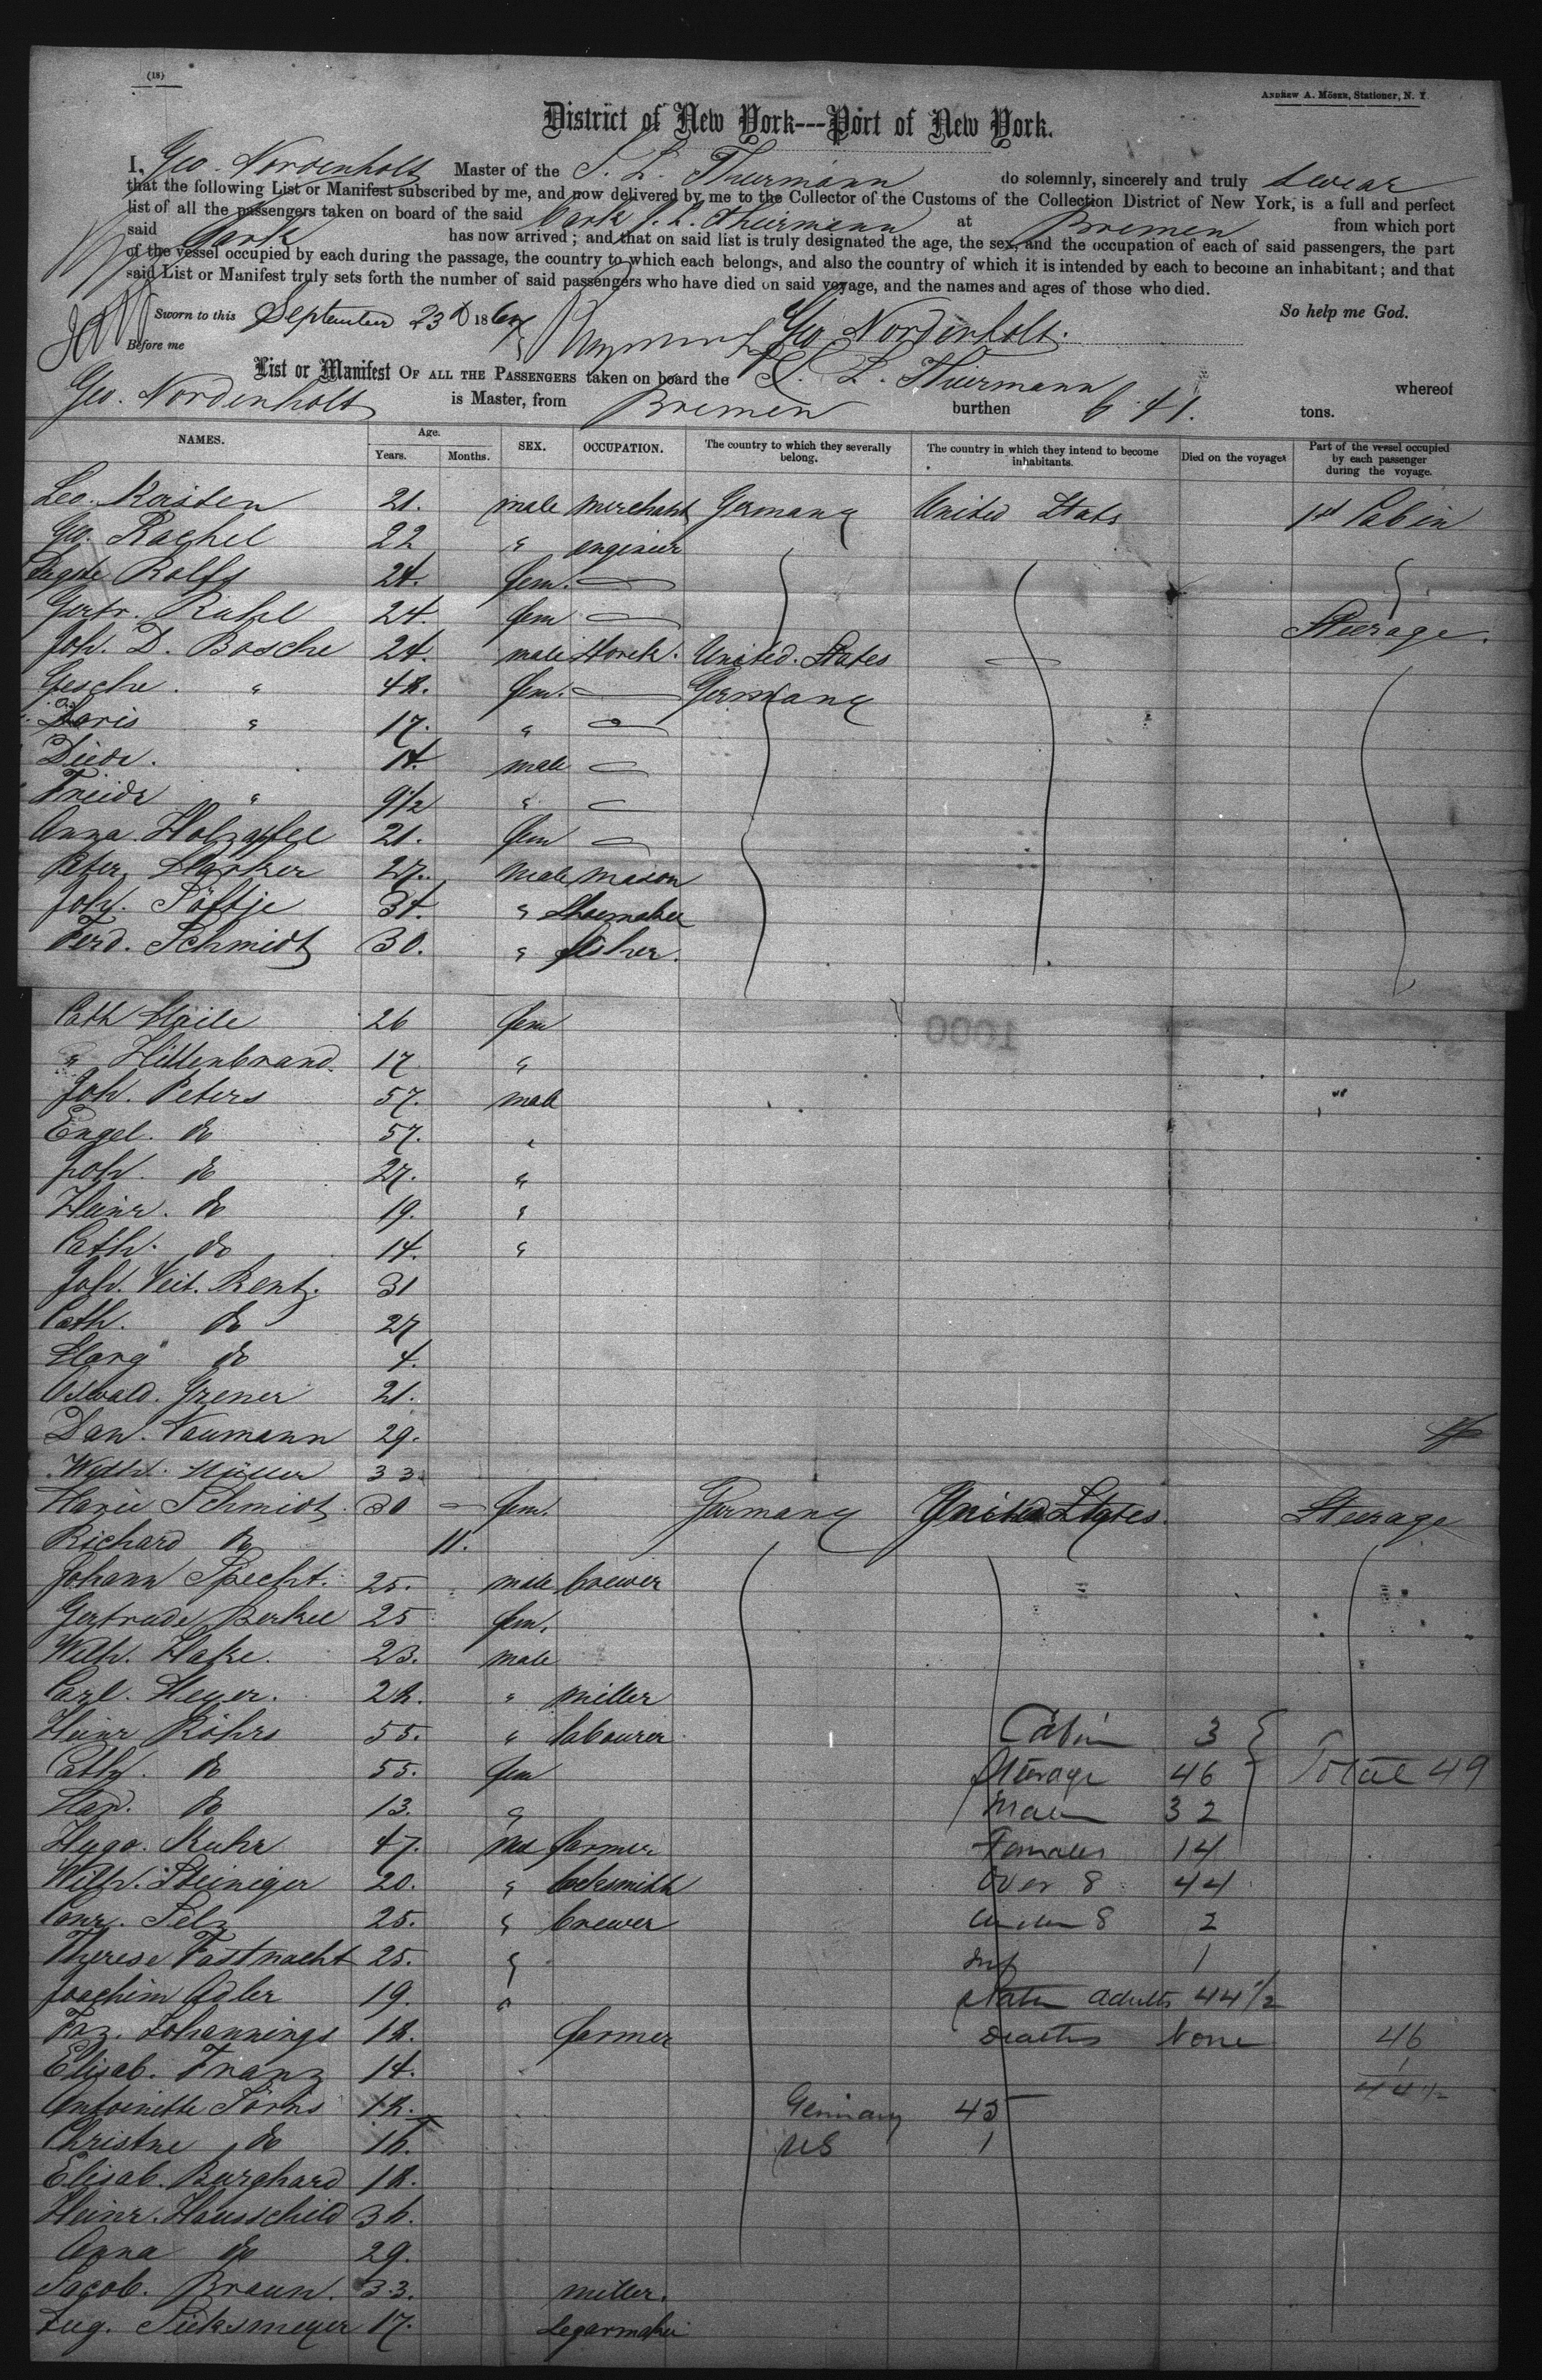 (18)
ANDREW A. MÖSER, Stationer, N. Y.
District of New York---Port of New York.
I, Geo. Nordenholt Master of the J. L. Thiermann do solemnly, sincerely and truly swear
that the following List or Manifest subscribed by me, and now delivered by me to the Collector of the Customs of the Collection District of New York, is a full and perfect
list of all the passengers taken on board of the said bark J. L. Thiermann at Bremen from which port
said bark has now arrived; and that on said list is truly designated the age, the sex, and the occupation of each of said passengers, the part
of the vessel occupied by each during the passage, the country to which each belongs, and also the country of which it is intended by each to become an inhabitant; and that
said List or Manifest truly sets forth the number of said passengers who have died on said voyage, and the names and ages of those who died.
So help me God.
Sworn to this September 23d 186
Geo Nordenholt.
Before me
List or Manifest OF ALL THE PASSENGERS taken on board the J. L. Thiermann whereof
Geo. Nordenholt is Master, from Bremen burthen 641. tons.
NAMES. Age. Years. Months. SEX. OCCUPATION. The country to which they severally belong. The country in which they intend to become inhabitants. Died on the voyage. Part of the vessel occupied by each passenger during the voyage.
Leo. Korsten 21. male merchant Germany United States 1st Cabin
Geo. Rachel 22 " engineer
Rolfs 24. fem.
Gertr. 24. fem
Joh. D. Bosche 24. male United States Steerage.
Gesche " 48. fem. Germany
Doris " 17. "
Diedr. 14. male
Friedr " 9 1/2 "
Anna Holzapfel 21. fem
Peter 27. male mason
Joh. Söltje 34. " Shoemaker
Ferd. Schmidt 30. " fisher.
Cath 26 fem
" Hillenbrand. 17 "
Joh. Peters 57. male
Engel. do 57. "
Joh. do 27. "
Heinr. do 19. "
Cath. do 14. "
Joh. Veit. Rentz. 31
Cath. do 27
Marg do 4.
Oswald. Grener 21.
Dan. Naumann 29.
Wilh. Müller 33.
Marie Schmidt 30 fem. Germany United States. Steerage
Richard do 11.
Johann Specht. 25. male brewer
Gertrude Berkel 25 fem.
Wilh. Hake. 23. male
Carl. Meyer. 28. " miller
Heinr Röhrs 55. " labourer Cabin 3
Cath. do 55. fem Steerage 46 Total 49
Mar. do 13. " Males 32
Hugo. Kuhr 47. male farmer Females 14
Wilh. Steiniger 20. " locksmith over 8 44
Conr. Selz 25. " brewer under 8 2
Therese Fastnacht 25. " Inf 1
Joachim Adler 19. " adults 44 1/2
Johannings 18. farmer deaths None 46
Elisab. Franz 14. 1 44 1/2
Antoinette Sörns 18. Germany 45
Christne do 16. US 1
Elisab. Burghard 18.
Heinr. Hausschild 36.
Anna do 29.
Jacob. Braun. 33. miller.
Aug. Sieksmeyer 17. Segarmaker